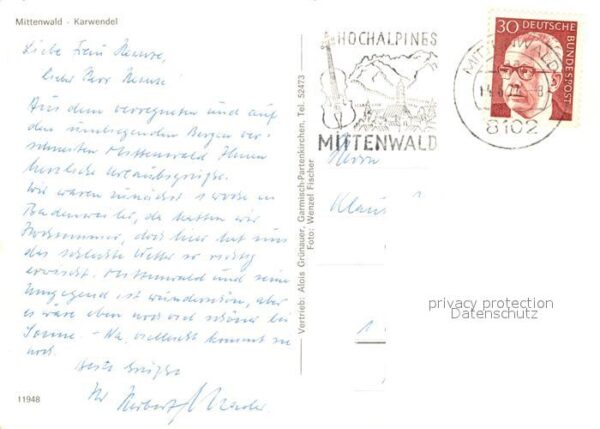 Mittenwald - Karwendel
Liebe Frau
lieber Herr
Aus dem verregneten und auf
den umliegenden Bergen ver-
schneiten Mittenwald Ihnen
herzliche Urlaubsgrüße.
Wir waren zunächst 1 Woche in
Badenweiler, da hatten wir
Hochsommer, doch hier hat uns
das schlechte Wetter so richtig
erwischt. Mittenwald und seine
Umgegend ist wunderschön, aber
es wäre eben noch viel schöner bei
Sonne. - Na, vielleicht kommt sie
noch.
Beste Grüße
Ihr Herbert
11948
Vertrieb: Alois Grünauer, Garmisch-Partenkirchen, Tel. 52473
Foto: Wenzel Fischer
HOCHALPINES
MITTENWALD
MITTENWALD
8102
30 DEUTSCHE
BUNDESPOST
Herrn
Klaus
1
privacy protection
Datenschutz